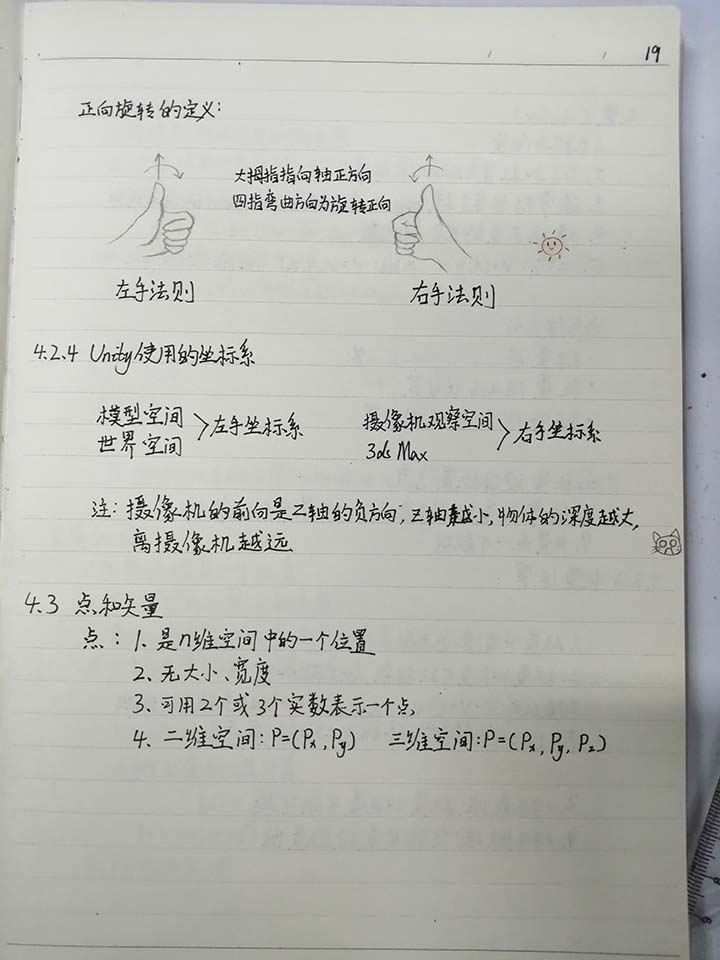 19
正向旋转的定义:
大拇指指向轴正方向
四指弯曲方向为旋转正向
左手法则 右手法则
4.2.4 Unity使用的坐标系
模型空间 摄像机观察空间
世界空间 >左手坐标系 3ds Max >右手坐标系
注: 摄像机的前向是Z轴的负方向, Z轴越小, 物体的深度越大,
离摄像机越远
4.3 点和矢量
点: 1. 是n维空间中的一个位置
2. 无大小、宽度
3. 可用2个或3个实数表示一个点
4. 二维空间: P=(Px, Py) 三维空间: P=(Px, Py, Pz)